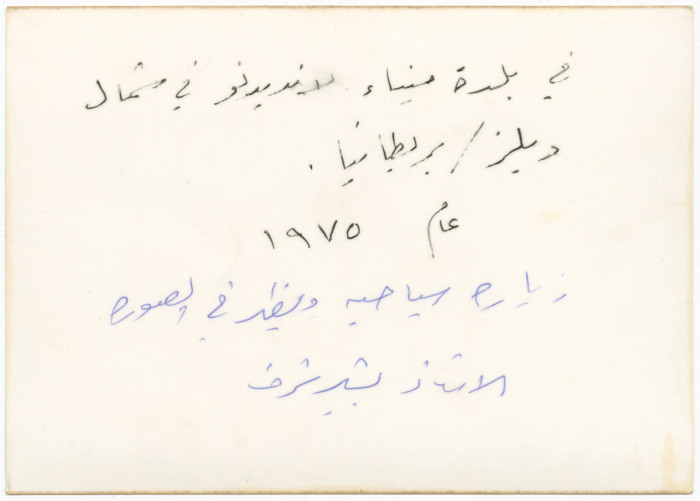 في بلدة ميناء لانديدنو في شمال
ويلز / بريطانيا .
عام ١٩٧٥
زياره سياحيه ويظهر في الصوره
الاستاذ بشير شريف